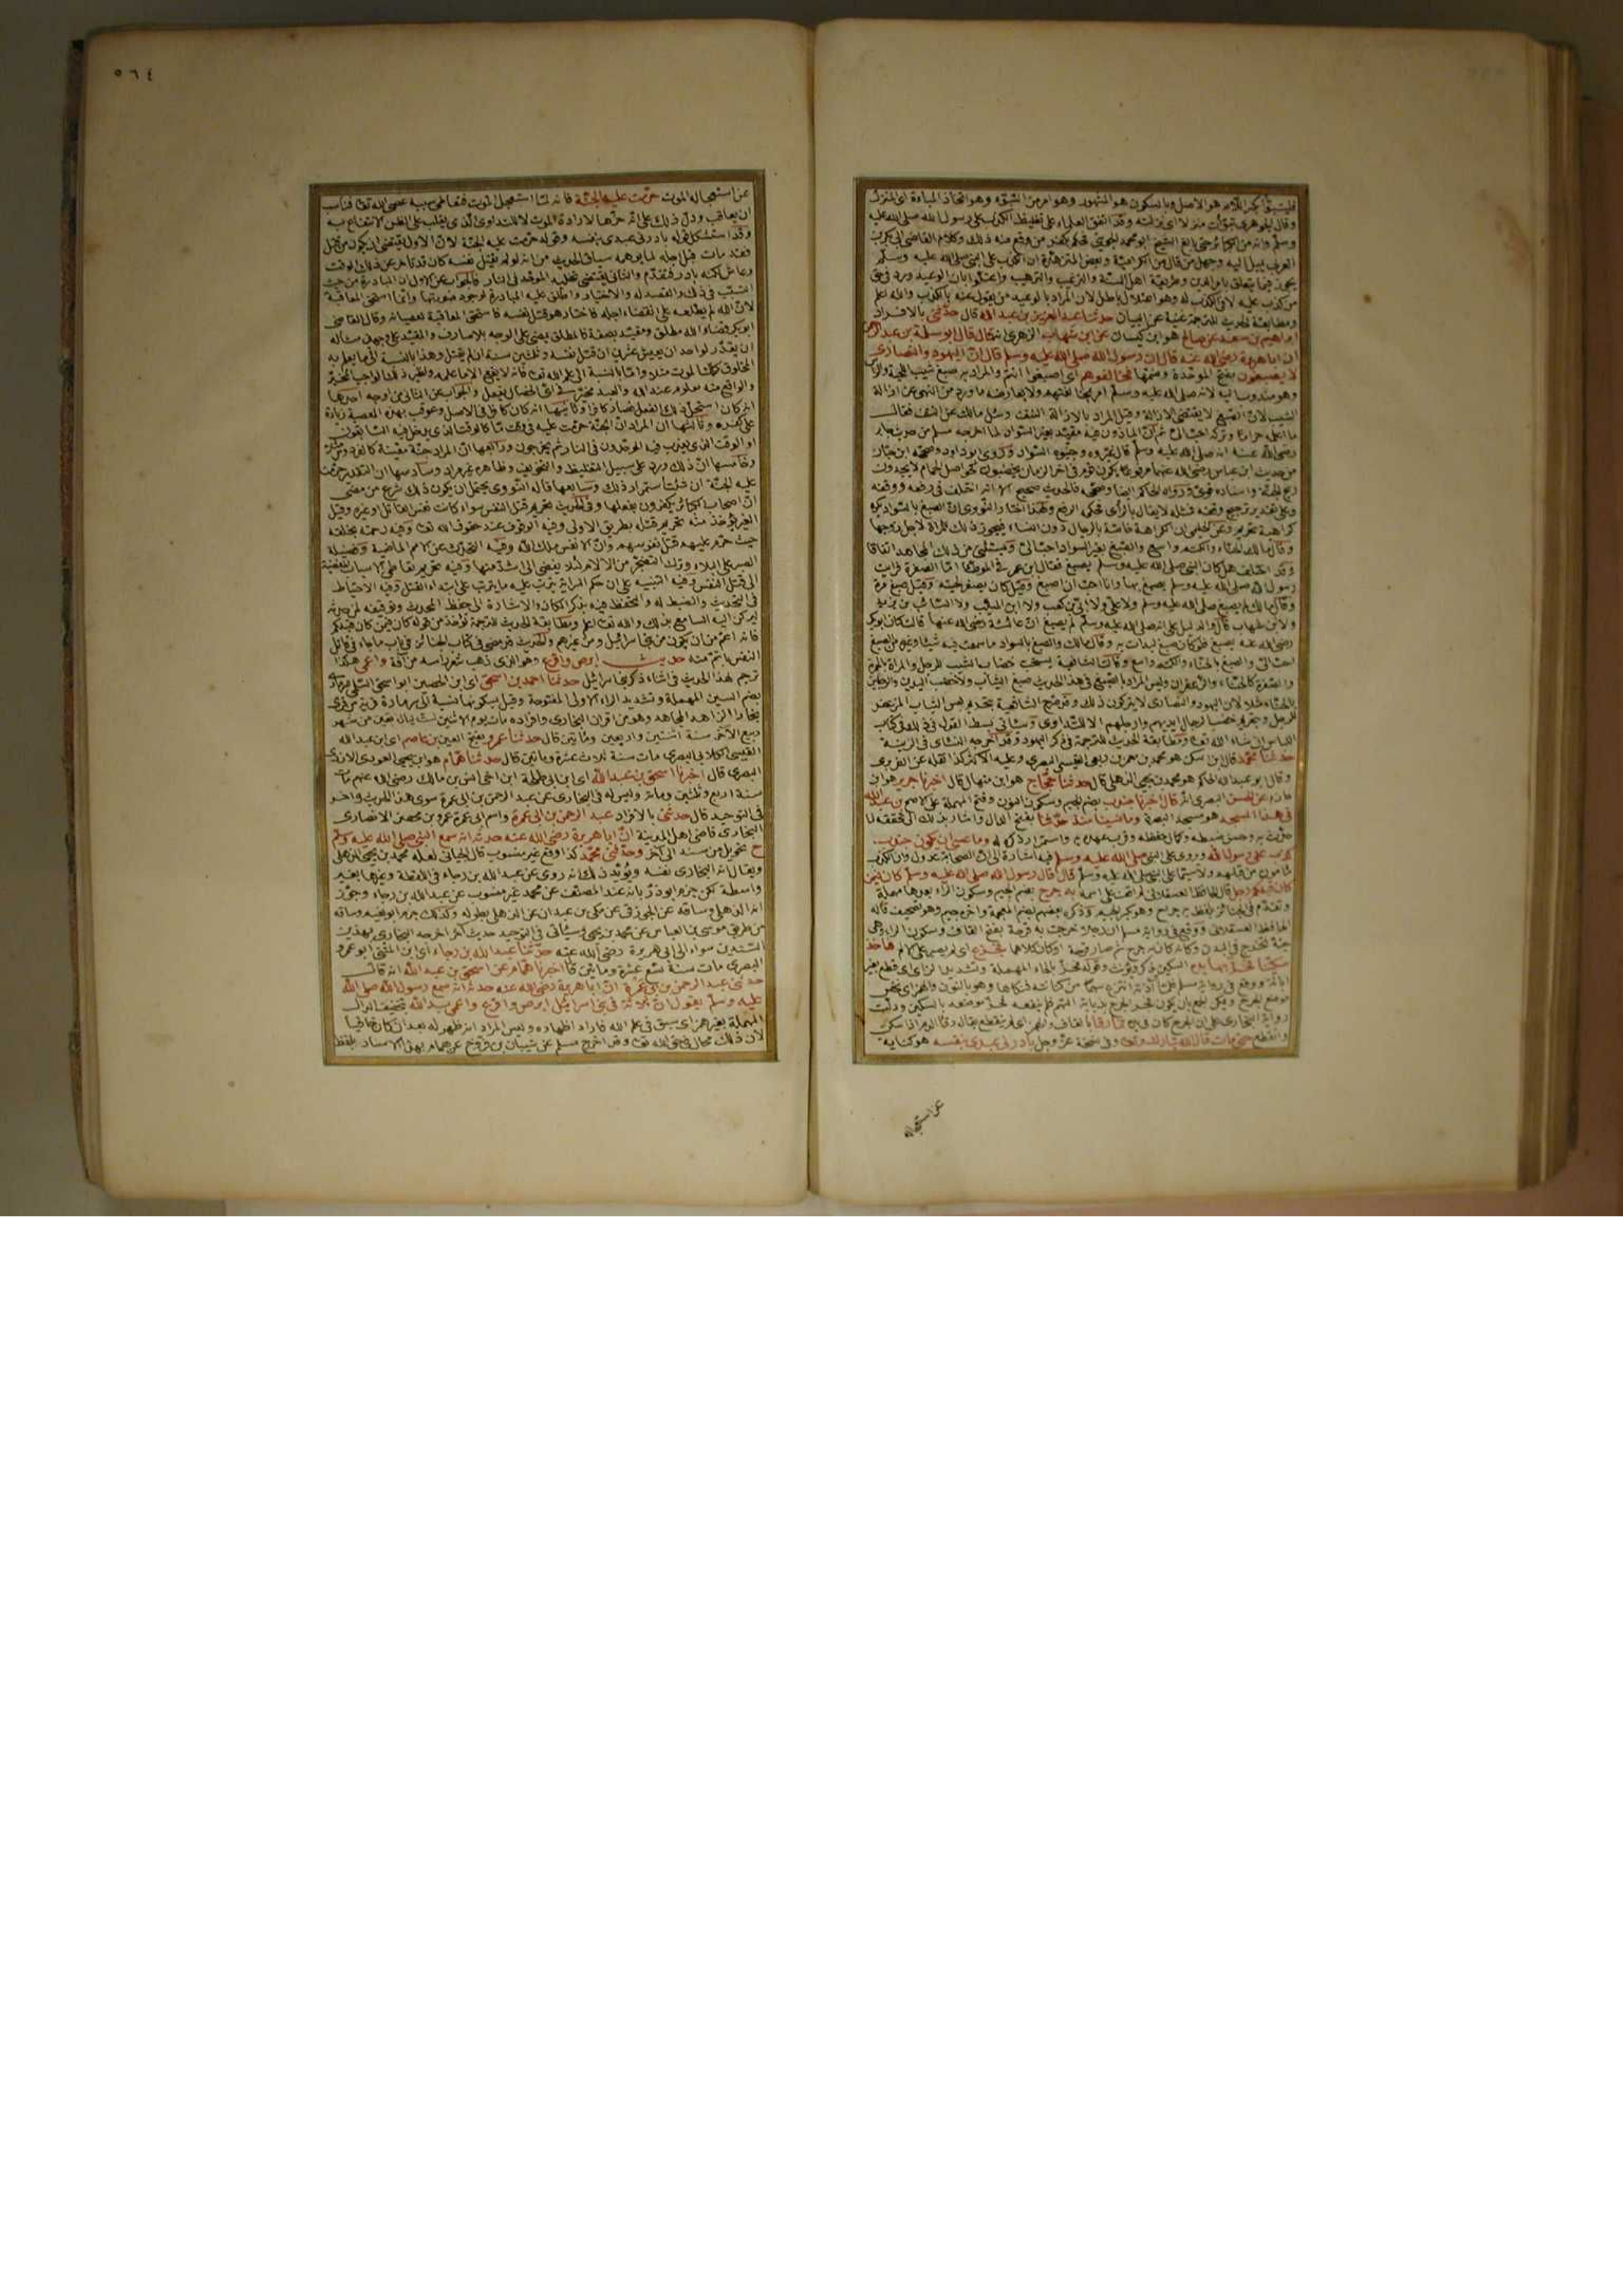 فليتبوأ بكسر اللام هو الاصل وبالسكون هو المشهور وهو امر من التبوء وهو اتخاذ المباءة اى المنزل
وقال الجوهرى تبوأت منزلا اى نزلته وقد اتفق العلماء على تغليظ الكذب على رسول الله صلى الله عليه
وسلم وانه من الكبائر حتى بالغ الشيخ ابو محمد الجوينى فحكم بكفر من وقع منه ذلك وكلام القاضى ابى بكر بن
العربى يميل اليه وجهل من قال من الكرامية وبعض المتزهدة ان الكذب على النبى صلى الله عليه وسلم
يجوز فيما يتعلق بامر الدين وطريقة اهل السنة والترغيب والترهيب واعتلوا بان الوعيد ورد فى حق
من كذب عليه لا فى الكذب له وهو اعتلال باطل لان المراد بالوعيد من يقول عنه بالكذب والله اعلم
ومطابقة الحديث للترجمة غنية عن البيان حدثنا عبد العزيز بن عبد الله قال حدثنى بالافراد
ابراهيم بن سعد عن صالح هو ابن كيسان عن ابن شهاب الزهرى انه قال قال ابو سلمة بن عبد الرحمن
ان ابا هريرة رضى الله عنه قال ان رسول الله صلى الله عليه وسلم قال ان اليهود والنصارى
لا يصبغون بفتح الموحدة وضمها فخالفوهم اى اصبغوا انتم والمراد به صبغ شيب اللحية والراس
وهو مندوب اليه لانه صلى الله عليه وسلم امر بمخالفتهم ولا يعارضه ما ورد من النهى عن ازالة
الشيب لان الصبغ لا يقتضى الازالة وقيل المراد بالازالة النتف وسئل مالك عن النتف فقال
ما اعلمه حراما وتركه احب الى ثم ان الماذون فيه مقيد بغير السواد لما اخرجه مسلم من حديث جابر
رضى الله عنه انه صلى الله عليه وسلم قال غيروه وجنبوه السواد وروى ابو داود وصححه ابن حبان
من حديث ابن عباس رضى الله عنهما مرفوعا يكون قوم فى اخر الزمان يخضبون كحواصل الحمام لا يجدون
ريح الجنة واسناده قوى ورواه الحاكم ايضا وصححه فالحديث صحيح الا انه اختلف فى رفعه ووقفه
وعلى تقدير ترجيح وقفه فمثله لا يقال بالراى فحكمه الرفع ولهذا اختار النووى ان الصبغ بالسواد يكره
كراهية تحريم وعن الحليمى ان الكراهة خاصة بالرجال دون النساء فيجوز ذلك للمراة لاجل زوجها
وقال مالك الحناء والكتم واسع والصبغ بغير السواد احب الى ويستثنى من ذلك المجاهد اتفاقا
وقد اختلف هل كان النبى صلى الله عليه وسلم يصبغ فقال ابن عمر فى الموطأ اما الصفرة فرأيت
رسول الله صلى الله عليه وسلم يصبغ بها وانا احب ان اصبغ وقيل كان يصفر لحيته وقيل صبغ مرة
وقال مالك لم يصبغ صلى الله عليه وسلم ولا على ولا ابى بن كعب ولا ابن المسيب ولا السائب بن يزيد
ولا ابن شهاب قال والدليل على انه صلى الله عليه وسلم لم يصبغ ان عائشة رضى الله عنها قالت كان ابو بكر
رضى الله عنه يصبغ فلو كان صبغ لبدأت به وقال مالك والصبغ بالسواد ما سمعت فيه شيئا وغيره من الصبغ
احب الى والصبغ بالحناء والكتم واسع وقالت الشافعية يستحب خضاب الشيب للرجل والمراة بالحمرة
والصفرة كالحناء والزعفران وليس المراد بالصبغ فى هذا الحديث صبغ الثياب ولا خضب اليدين والرجلين
بالحناء مثلا لان اليهود والنصارى لا يتركون ذلك وقد صرح الشافعية بتحريم لبس الثياب المزعفر
للرجل وبتحريم خضب الرجال ايديهم وارجلهم الا للتداوى وسيأتى بسط القول فى ذلك فى كتاب
اللباس ان شاء الله تعالى ومطابقة الحديث للترجمة فى ذكر اليهود وقد اخرجه النسائى فى الزينة
حدثنا محمد قال ابن سكن هو محمد بن معمر بن ربعى القيسى البصرى وعليه الاكثر كذا نقله عن الفربرى
وقال ابو عبد الله الحاكم هو محمد بن يحيى الذهلى قال حدثنا حجاج هو ابن منهال قال اخبرنا جرير هو ابن
حازم عن الحسن البصرى انه قال اخبرنا جندب بضم الجيم وسكون النون وفتح المهملة على الاصح بن عبد الله
فى هذا المسجد هو مسجد البصرة وما نسينا منذ حدثنا بفتح الدال واشار بذلك الى تحققه لما
حدث به وحسن ضبطه وكمال حفظه وقرب عهده به واستمرار ذكره له وما نخشى ان يكون جندب
كذب على رسول الله وروى على النبى صلى الله عليه وسلم فيه اشارة الى ان الصحابة عدول وان الكذب
مأمون من قبلهم ولا سيما على النبى صلى الله عليه وسلم قال قال رسول الله صلى الله عليه وسلم كان فيمن
كان قبلكم رجل قال الحافظ العسقلانى لم اقف على اسمه به جرح بضم الجيم وسكون الراء بعدها مهملة
وتقدم فى الجنائز بلفظ به جراح وهو بكسر الجيم وذكره بعضهم بضم المعجمة واخره جيم وهو تصحيف قاله
الحافظ العسقلانى ووقع فى رواية مسلم ان رجلا خرجت به قرحة بفتح القاف وسكون الراء وهى
حبة تخرج فى البدن وكأنه كان به جرح ثم صار قرحة او كان كلاهما فجزع اى لم يصبر على الالم فاخذ
سكينا فحز بها يده السكين يذكر ويؤنث وقوله فحز بالحاء المهملة وتشديد الزاى اى قطع بغير
ابانة ووقع فى رواية مسلم فلما آذته انتزع سهما من كنانته فنكأها وهو بالنون والهمز اى نخس
موضع الجرح ويمكن الجمع بان يكون فجر الجرح بذبابة السهم فلم ينفعه فحز موضعه بالسكين ودلت
رواية البخارى على ان الجرح كان فى يده فما رقأ بالقاف والهمز اى لم ينقطع يقال رقأ الدم اذا سكن
وانقطع حتى مات قال الله تبارك وتعالى وفى نسخة عز وجل بادرنى عبدى بنفسه هو كناية
عن استعجاله
٥٦٤
عن استعجاله الموت حرمت عليه الجنة فانه لما استعجل الموت بتعاطى سببه عصى الله تعالى فناسب
ان يعاقب ودل ذلك على انه حزها لارادة الموت لا للتداوى الذى يغلب على الظن الانتفاع به
وقد استشكل قوله بادرنى عبدى بنفسه وقوله حرمت عليه الجنة لان الاول يقتضى ان يكون من قتل
فقد مات قبل اجله لما يوهمه سياق الحديث من انه لو لم يقتل نفسه كان قد تأخر عن ذلك الوقت
وعاش لكنه بادر فتقدم والثانى يقتضى تخليد الموحد فى النار فالجواب عن الاول ان المبادرة من حيث
التسبب فى ذلك والقصد له والاختيار واطلق عليه المبادرة لوجود صورتها وانما استحق المعاقبة
لان الله لم يطلعه على انقضاء اجله فاختار هو قتل نفسه فاستحق المعاقبة لعصيانه وقال القاضى
ابو بكر قضاء الله مطلق ومقيد بصفة فالمطلق يمضى على الوجه بلا صارف والمقيد على وجهين مثاله
ان يقدر لواحد ان يعيش عشرين ان قتل نفسه وثلثين سنة ان لم يقتل وهذا بالنسبة الى ما يعلم به
المخلوق كملك الموت مثلا واما بالنسبة الى علم الله تعالى فانه لا يقع الا ما علمه ونظير ذلك الواجب المخير
والواقع منه معلوم عند الله والعبد مخير فى اى الخصال يفعل والجواب عن الثانى من اوجه احدها
انه كان استحل ذلك الفعل فصار كافرا وثانيها انه كان كافرا فى الاصل وعوقب بهذه المعصية زيادة
على كفره وثالثها ان المراد ان الجنة حرمت عليه فى وقت ما كالوقت الذى يدخل فيه السابقون
او الوقت الذى يعذب فيه الموحدون فى النار ثم يخرجون ورابعها ان المراد جنة معينة كالفردوس مثلا
وخامسها ان ذلك ورد على سبيل التغليظ والتخويف وظاهره غير مراد وسادسها ان التقدير حرمت
عليه الجنة ان شئت استمرار ذلك وسابعها قاله النووى يحتمل ان يكون ذلك شرع من مضى
ان اصحاب الكبائر يكفرون بفعلها وفى الحديث تحريم قتل النفس سواء كانت نفس القاتل او غيره وقتل
الغير يؤخذ منه تحريم قتله بطريق الاولى وفيه الوقوف عند حقوق الله تعالى وفيه رحمته بخلقه
حيث حرم عليهم قتل نفوسهم وان الانفس ملك الله وفيه التحديث عن الامم الماضية وفضيلة
الصبر على البلاء وترك التضجر من الآلام لئلا يفضى الى اشد منها وفيه تحريم تعاطى الاسباب المفضية
الى قتل النفس وفيه التنبيه على ان حكم السراية يترتب عليه ما يترتب على ابتداء القتل وفيه الاحتياط
فى التحديث والضبط له والتحفظ فيه بذكر المكان والاشارة الى حفظ المحدث وتوثيقه لمن حدثه
ليركن اليه السامع بذلك والله تعالى اعلم ومطابقة الحديث للترجمة تؤخذ من قوله كان فيمن كان قبلكم
فانه اعم من ان يكون من بنى اسرائيل ومن غيرهم والحديث قد مضى فى كتاب الجنائز فى باب ما جاء فى قاتل
النفس باتم منه حديث ابرص واقرع وهو الذى ذهب شعر رأسه من آفة واعمى هكذا
ترجم لهذا الحديث فى اثناء ذكر بنى اسرائيل حدثنا احمد بن اسحق اى ابن الحصين ابو اسحق السلمى السرمارى
بضم السين المهملة وتشديد الراء الاولى المفتوحة وقيل بسكونها نسبة الى سرمارة قرية من قرى
بخارا الزاهد المجاهد وهو من اقران البخارى وافراده مات يوم الاثنين لست ليال بقين من شهر
ربيع الآخر سنة اثنتين واربعين ومأتين قال حدثنا عمرو بفتح العين بن عاصم اى ابن عبد الله
القيسى الكلابى البصرى مات سنة ثلاث عشرة ومأتين قال حدثنا همام هو ابن يحيى العوذى الازدى
البصرى قال اخبرنا اسحق بن عبد الله اى ابن ابى طلحة ابن اخى انس بن مالك رضى الله عنهم مات
سنة اربع وثلثين ومائة وليس له فى البخارى عن عبد الرحمن بن ابى عمرة سوى هذا الحديث وآخر
فى التوحيد قال حدثنى بالافراد عبد الرحمن بن ابى عمرة واسم ابى عمرة عمرو بن محصن الانصارى
البخارى قاضى اهل المدينة ان ابا هريرة رضى الله عنه حدثه انه سمع النبى صلى الله عليه وسلم
ح تحويل من سند الى آخر وحدثنى محمد كذا وقع غير منسوب قال الجيانى لعله محمد بن يحيى الذهلى
ويقال انه البخارى نفسه ويؤيد ذلك انه روى عن عبد الله بن رجاء فى اللقطة وغيرها بغير
واسطة لكن جزم ابو ذر بانه عند المصنف عن محمد غير منسوب عن عبد الله بن رجاء وجوز
انه الذهلى وساقه عن الجوزقى عن مكى بن عبدان عن الذهلى بطوله وكذلك جزم ابو نعيم وساقه
من طريق موسى بن العباس عن محمد بن يحيى وسيأتى فى التوحيد حديث آخر اخرجه البخارى بهذين
السندين سواء الى ابى هريرة رضى الله عنه حدثنا عبد الله بن رجاء اى ابن المثنى ابو عمرو
البصرى مات سنة تسع عشرة ومأتين قال اخبرنا همام عن اسحق بن عبد الله انه قال
حدثنى عبد الرحمن بن ابى عمرة ان ابا هريرة رضى الله عنه حدثه انه سمع رسول الله صلى الله
عليه وسلم يقول ان ثلاثة فى بنى اسرائيل ابرص واقرع واعمى بدا لله بتخفيف الدال
المهملة بغير همز اى سبق فى علم الله فاراد اظهاره وليس المراد انه ظهر له بعد ان كان خافيا
لان ذلك محال فى حق الله تعالى وقد اخرج مسلم عن شيبان بن فروخ عن همام بهذا الاسناد بلفظ